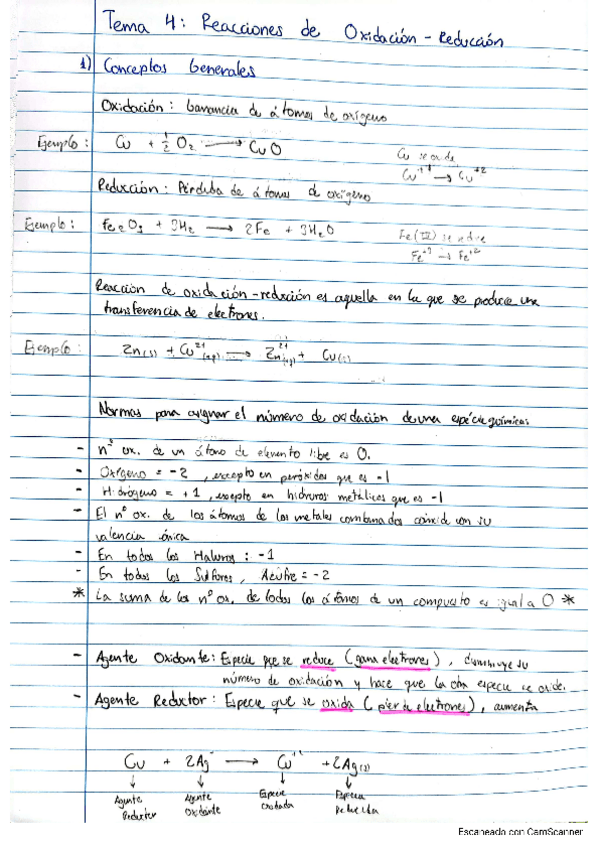 Tema 4: Reacciones de Oxidación-Reducción
1) Conceptos Generales
Oxidación: Ganancia de átomos de oxígeno
Ejemplo: Cu + 1/2 O2 → CuO
Cu se oxida
Reducción: Pérdida de átomos de oxígeno
Ejemplo: Fe2O3 + 3H2 → 2Fe + 3H2O
Fe(III) se reduce
Reacción de oxidación-reducción es aquella en la que se produce una
transferencia de electrones.
Ejemplo: Zn(s) + Cu2+(aq) → Zn2+(aq) + Cu(s)
Normas para asignar el número de oxidación de una especie química:
- nº ox. de un átomo de elemento libre es 0.
- Oxígeno = -2, excepto en peróxidos que es -1
- Hidrógeno = +1, excepto en hidruros metálicos que es -1
- El nº ox. de los átomos de los metales combinados coincide con su
valencia iónica
- En todos los Haluros: -1
- En todos los Sulfuros, Azufre = -2
* La suma de los nº ox. de todos los átomos de un compuesto es igual a 0 *
- Agente Oxidante: Especie que se reduce (gana electrones), disminuye su
número de oxidación y hace que la otra especie se oxide.
- Agente Reductor: Especie que se oxida (pierde electrones), aumenta
Cu + 2Ag → Cu + 2Ag(s)
↓ ↓ ↓ ↓
Agente Agente Especie Especie
Reductor Oxidante Oxidada Reducida
Escaneado con CamScanner